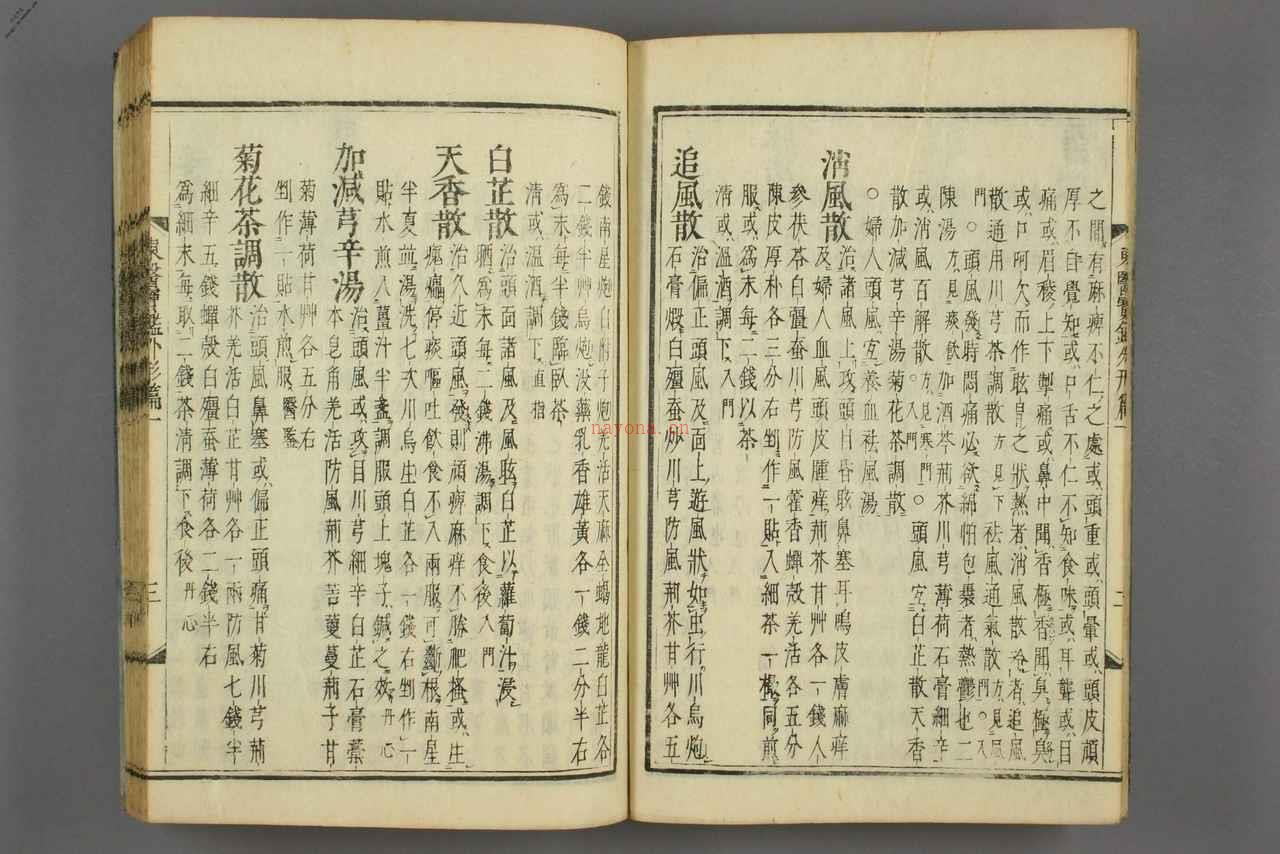 之間有麻痺不仁之處或頭重或頭暈或頭皮頑
厚不自覺知或口舌不仁不知食味或耳聾或目
痛或眉稜上下掣痛或鼻中聞香極香聞臭極臭
或只呵欠而作眩冒之狀熱者消風散冷者追風
散通用川芎茶調散方見下祛風通氣散方見風
門○頭風發時悶痛必欲綿帕包裹者熱鬱也二
陳湯方見痰飲加酒芩荊芥川芎薄荷石膏細辛
或消風百解散方見寒門○頭風宜白芷散天香
散加減芎辛湯菊花茶調散入門
○婦人頭風宜養血祛風湯
消風散治諸風上攻頭目昏眩鼻塞耳鳴皮膚麻痒
及婦人血風頭皮腫痒荊芥甘艸各一錢人
參茯苓白殭蚕川芎防風藿香蟬殼羌活各五分
陳皮厚朴各三分右剉作一貼入細茶一撮同煎
服或爲末每二錢以茶
清或溫酒調下入門
追風散治偏正頭風及面上遊風狀如虫行川烏炮
石膏煅白殭蚕炒川芎防風荊芥甘艸各五
東醫寶鑑外形篇一
二
錢南星炮白附子炮羌活天麻全蝎地龍白芷各
二錢半艸烏炮沒藥乳香雄黃各一錢二分半右
爲末每半錢臨臥茶
清或溫酒調下直指
白芷散治頭面諸風及風眩白芷以蘿蔔汁浸
晒爲末每二錢沸湯調下食後入門
天香散治久近頭風發則頑痺麻痒不勝肥搔或生
瘣癗停痰嘔吐飲食不入兩服可斷根南星
半夏並湯洗七次川烏生白芷各一錢右剉作一
貼水煎入薑汁半盞調服頭上塊子鍼之效丹心
加減芎辛湯治頭風或攻目川芎細辛白芷石膏藁
本皂角羌活防風荊芥苦蔓蔓荊子甘
菊薄荷甘艸各五分右
剉作一貼水煎服醫鑑
菊花茶調散治頭風鼻塞或偏正頭痛甘菊川芎荊
芥羌活白芷甘艸各一兩防風七錢半
細辛五錢蟬殼白殭蚕薄荷各二錢半右
爲細末每取二錢茶清調下食後丹心
東醫寶鑑外形篇一
三
nayona.cn